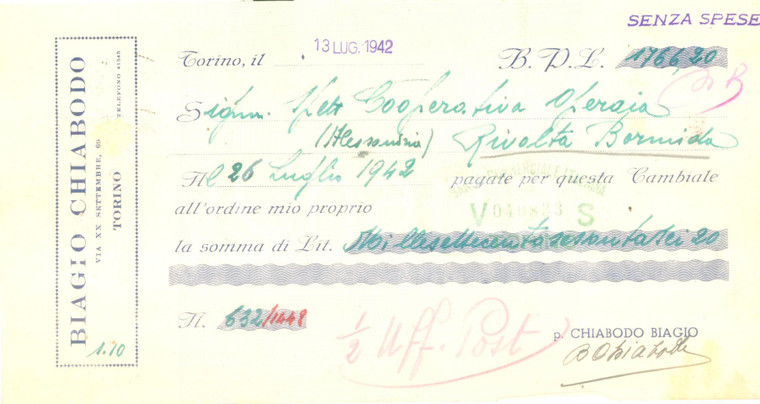 SENZA SPESE
Torino, il 13 LUG. 1942 B.P.L. 1766 20
Signor. Spett Cooperativa Operaia
(Alessandria) Rivolta Bormida
Al 26 Luglio 1942 pagate per questa Cambiale
V 040823 S
all'ordine mio proprio
la somma di Lit. Millesettecentosessantasei 20
N. 632/1449
½ Uff. Post
p. CHIABODO BIAGIO
B Chiabodo
BIAGIO CHIABODO
VIA XX SETTEMBRE, 60
TORINO
TELEFONO
1.70